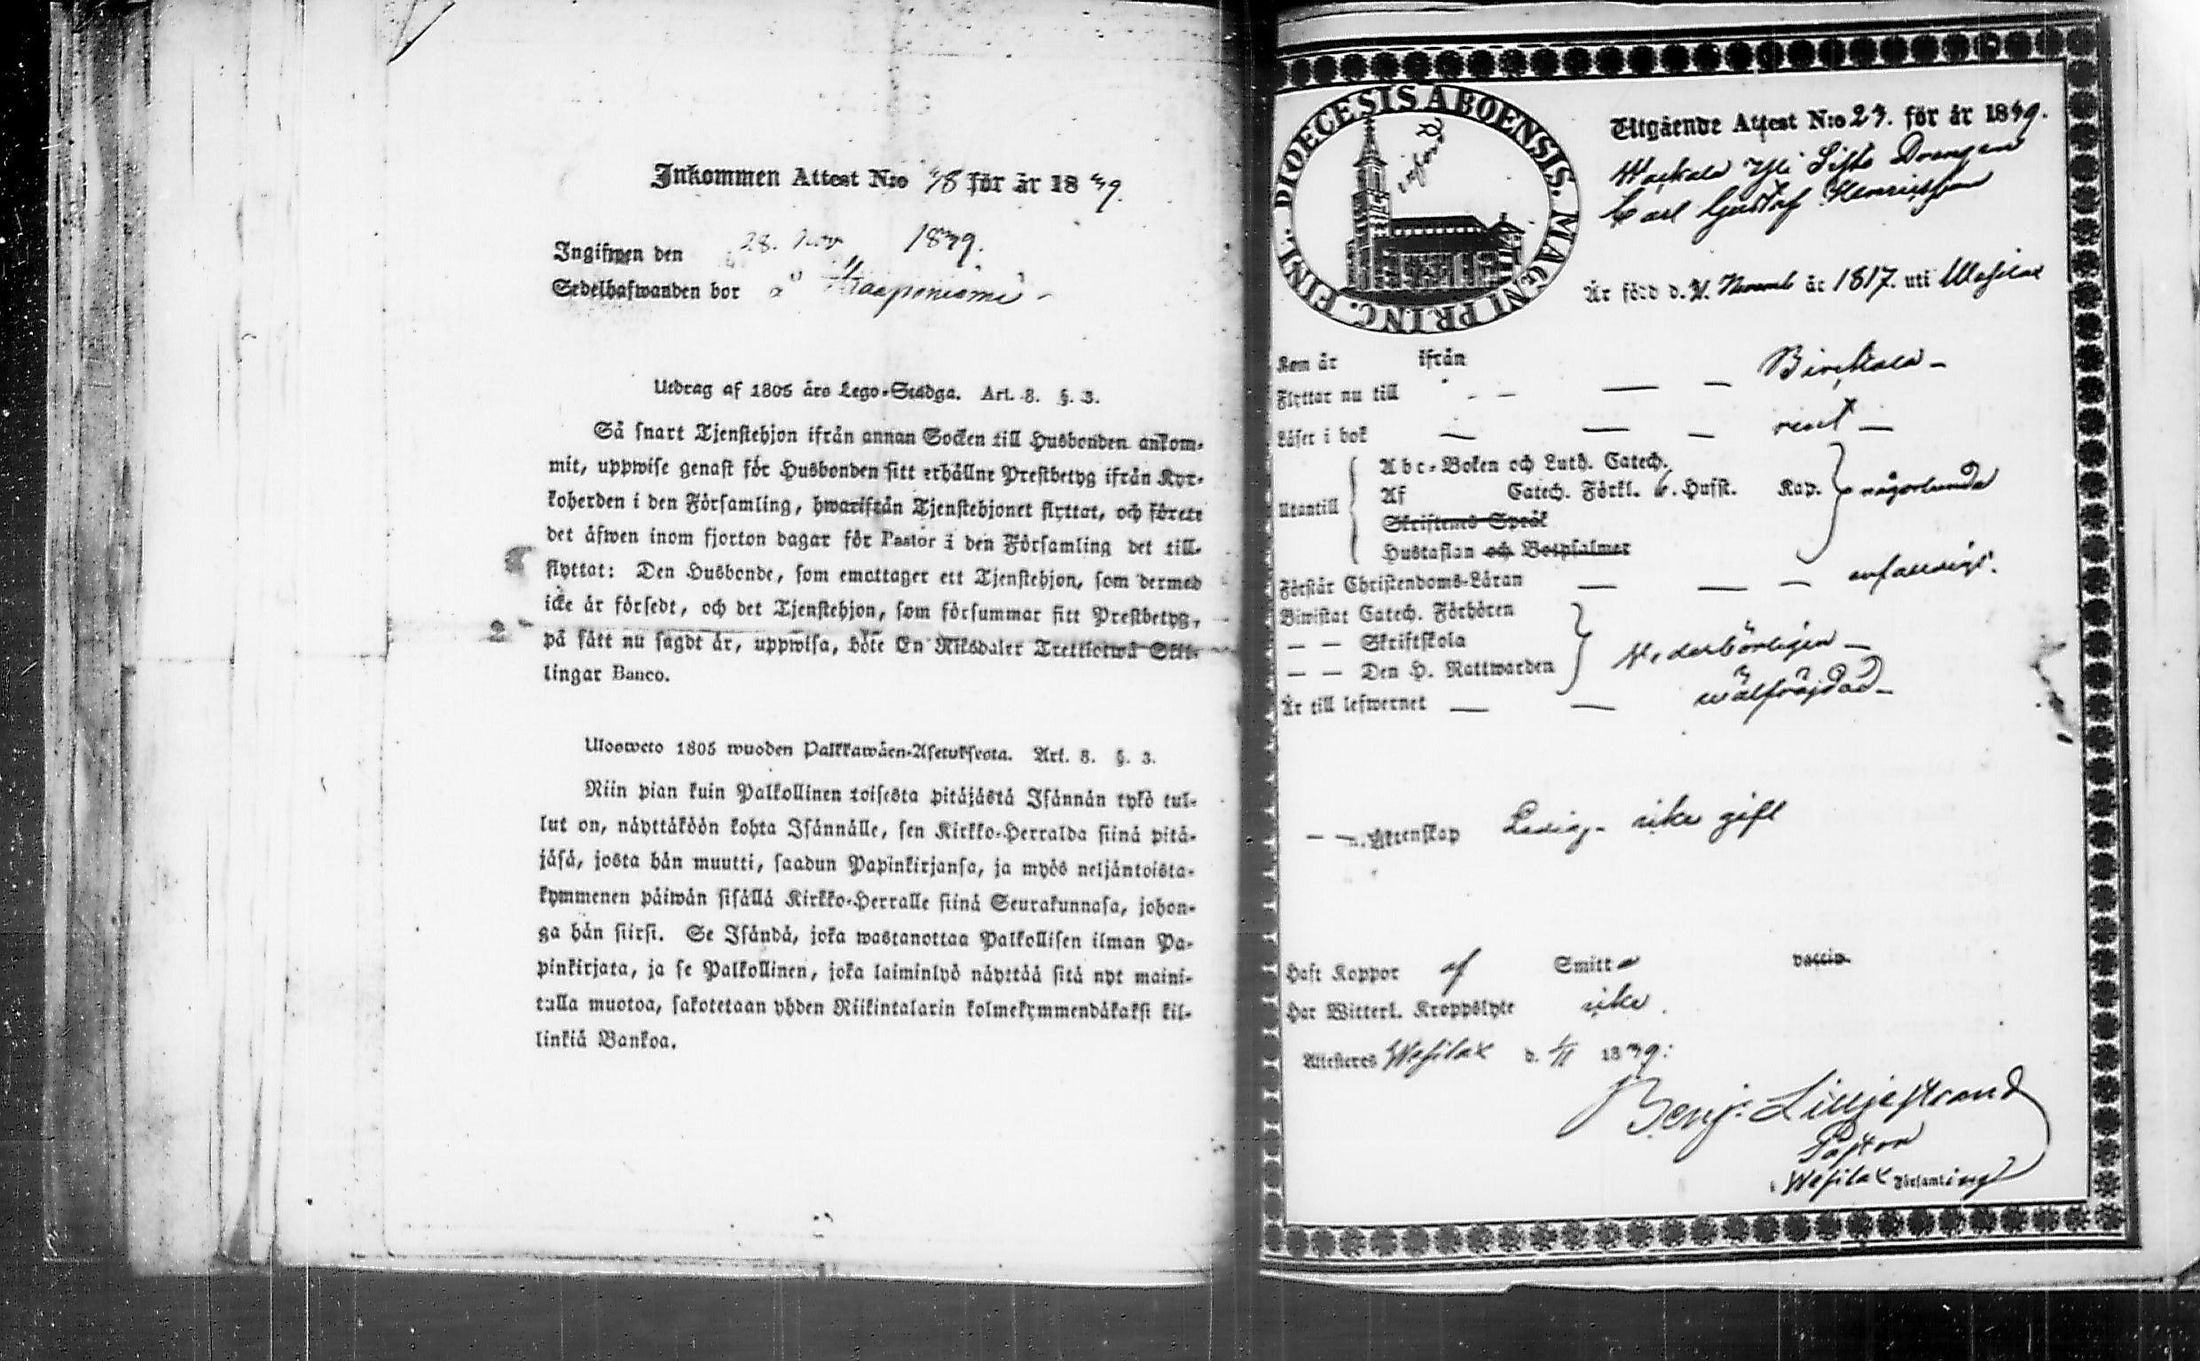 Inkommen Attest N:o 48 för år 1839.
Ingifwen den 28. Nov 1839.
Sedelhafwanden bor å Haaponiemi
Utdrag af 1805 års Lego-Stadga. Art. 8. §. 3.
Så snart Tjenstehjon ifrån annan Socken till Husbonden ankom-
mit, uppwise genast för Husbonden sitt erhållne Prestbetyg ifrån Kyr-
koherden i den Församling, hwarifrån Tjenstehjonet flyttat, och förete
det äfwen inom fjorton dagar för Pastor i den Församling det till-
flyttat: Den Husbonde, som emottager ett Tjenstehjon, som dermed
icke är försedt, och det Tjenstehjon, som försummar sitt Prestbetyg,
på sätt nu sagdt är, uppwisa, böte En Riksdaler Trettiotwå Skil-
lingar Banco.
Ulosweto 1805 wuoden Palkkawäen-Asetuksesta. Art. 8. §. 3.
Niin pian kuin Palkollinen toisesta pitäjästä Isännän tykö tul-
lut on, näyttäköön kohta Isännälle, sen Kirkko-Herralda siinä pitä-
jäsä, josta hän muutti, saadun Papinkirjansa, ja myös neljäntoista-
kymmenen päiwän sisällä Kirkko-Herralle siinä Seurakunnasa, johon-
ga hän siirsi. Se Isändä, joka wastanottaa Palkollisen ilman Pa-
pinkirjata, ja se Palkollinen, joka laiminlyö näyttää sitä nyt maini-
tulla muotoa, sakotetaan yhden Riikintalarin kolmekymmendäkaksi kil-
linkiä Bankoa.
DIOECESIS ABOENSIS. MAGNI PRINC. FINL.
införd
Utgående Attest N:o 23. för år 1839.
Drängen
Carl Gustaf Henricsson
Är född d. Novemb år 1817. uti Wesilax
Kom år ifrån
Flyttar nu till Birckala
Läser i bok rent
Utantill
Abc-Boken och Luth. Catech.
Af Catech. Förkl. o. Husst. Kap. någorlunda
Skriftens Språk
Hustaflan och Botpsalmer
Förstår Christendoms-Läran enfaldigt.
Biwistat Catech. Förhören
— — Skriftskola
— — Den H. Nattwarden
Wederbörligen
Är till lefwernet wälfräjdad
— — Äktenskap Ledig - icke gift
Haft Koppor af Smitta vaccin.
Har Witterl. Kroppslyte icke
Attesteres Wesilax d. 1839:
Benj: Lilljestrand
Pastor
i Wesilax Församling